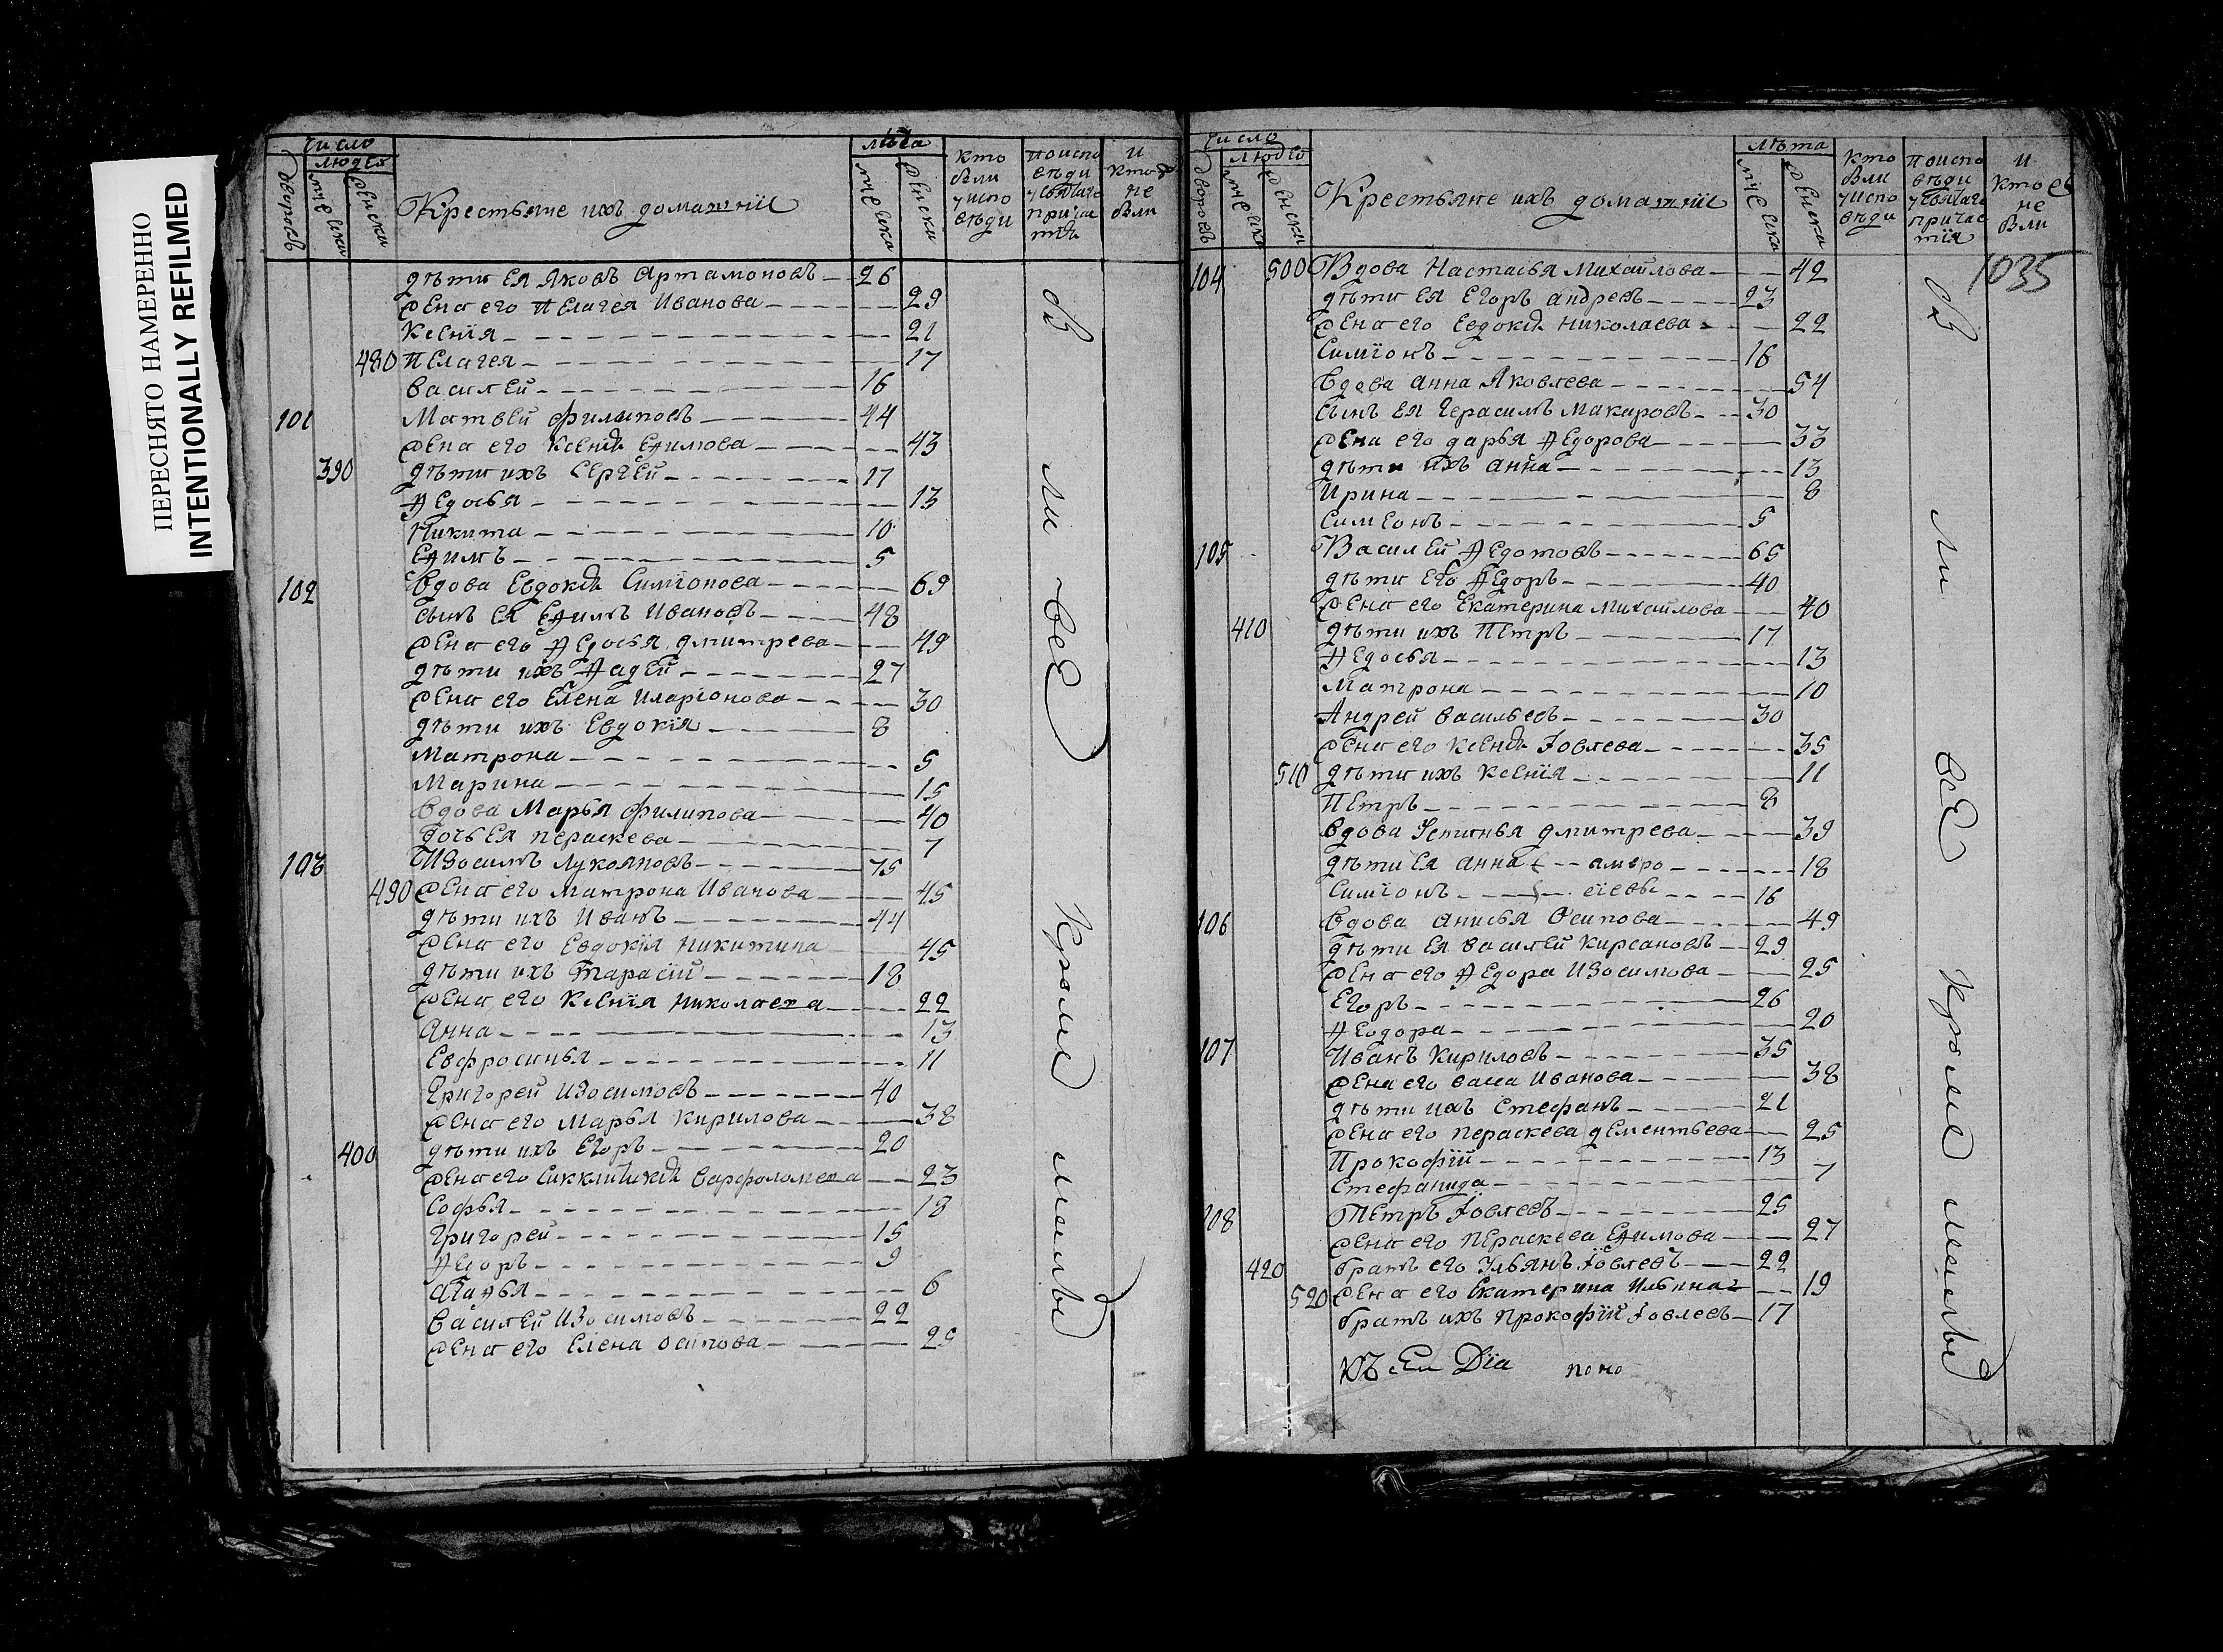 ПЕРЕСНЯТО НАМЕРЕННО
INTENTIONALLY REFILMED
число
людей
дворовъ
мужеска
женски
Крестьяне ихъ домашнїи
лѣта
мужеска
женски
кто были у исповѣди
по исповѣди у святаго причастїя
и кто не были
дѣти ея Яковъ Артамоновъ 26
жена его Пелагея Иванова 29
Ксенїя 21
480 Пелагея 17
василей 16
101 Матвей филиповъ 44
жена его Ксенїя Ефимова 43
390 дѣти ихъ Сергей 17
Ѳедосья 13
Никита 10
Ефимъ 5
102 вдова Евдокїя Симїонова 69
сынъ ея Ефимъ Ивановъ 48
жена его Ѳедосья дмитрева 49
дѣти ихъ Ѳадей 27
жена его Елена Иларїонова 30
дѣти ихъ Евдокїя 8
Матрона 5
Марина 15
вдова Марья филипова 40
дочь ея Пераскева 7
103 Изосимъ Лукояновъ 75
490 жена его Матрона Иванова 45
дѣти ихъ Иванъ 44
жена его Евдокїя Никитина 45
дѣти ихъ Тарасїй 18
жена его Ксенїя Николаева 22
Анна 13
Евфросинья 11
Григорей Изосимовъ 40
жена его Марья Кирилова 38
400 дѣти ихъ Егоръ 20
жена его Сикклитикїя варфоломева 23
Софья 18
Григорей 15
Ѳедоръ 9
Агафья 6
василей Изосимовъ 22
жена его Елена осипова 25
ОБ ли все Кроме малы
число
людей
дворовъ
мужеска
женски
Крестьяне ихъ домашнїи
лѣта
мужеска
женски
кто были у исповѣди
по исповѣди у святаго причастїя
и кто не были
1035
104 500 Вдова Настасья Михайлова 42
дѣти ея Егоръ андревъ 23
жена его Евдокїя Николаева 22
Симїонъ 16
вдова анна Яковлева 54
сынъ ея Герасимъ Макаровъ 30
жена его дарья Ѳедорова 33
дѣти ихъ анна 13
Ирина 8
Симеонъ 5
105 Василей Ѳедотовъ 65
дѣти его Ѳедоръ 40
жена его Екатерина Михайлова 40
410 дѣти ихъ Петръ 17
Ѳедосья 13
Матрона 10
Андрей васильевъ 30
жена его Ксенїя Їовлева 35
510 дѣти ихъ Ксенїя 11
Петръ 8
вдова Устинья дмитрева 39
дѣти ея анна амвро 18
Симїонъ сїевы 16
106 вдова анисья Осипова 49
дѣти ея василей Кирсановъ 29
жена его Ѳедора Изосимова 25
Егоръ 26
Ѳеодора 20
107 Иванъ Кириловъ 35
жена его васса Иванова 38
дѣти ихъ Стефанъ 21
жена его Пераскева дементьева 25
Прокофїй 13
Стефанида 7
108 Петръ Їовлевъ 25
жена его Пераскева Ефимова 27
420 братъ его Ульянъ Їовлевъ 22
520 жена его Екатерина Ильина 19
братъ ихъ Прокофїй Їовлевъ 17
ОБ ли все Кроме малы
Дїа поно